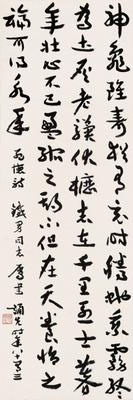 神龜雖壽猶有竟時騰蛇乘霧終
為土灰老驥伏櫪志在千里烈士暮
年壯心不已盈縮之期不但在天養怡之
福可得永年 同志屬書 誦先時年八十三